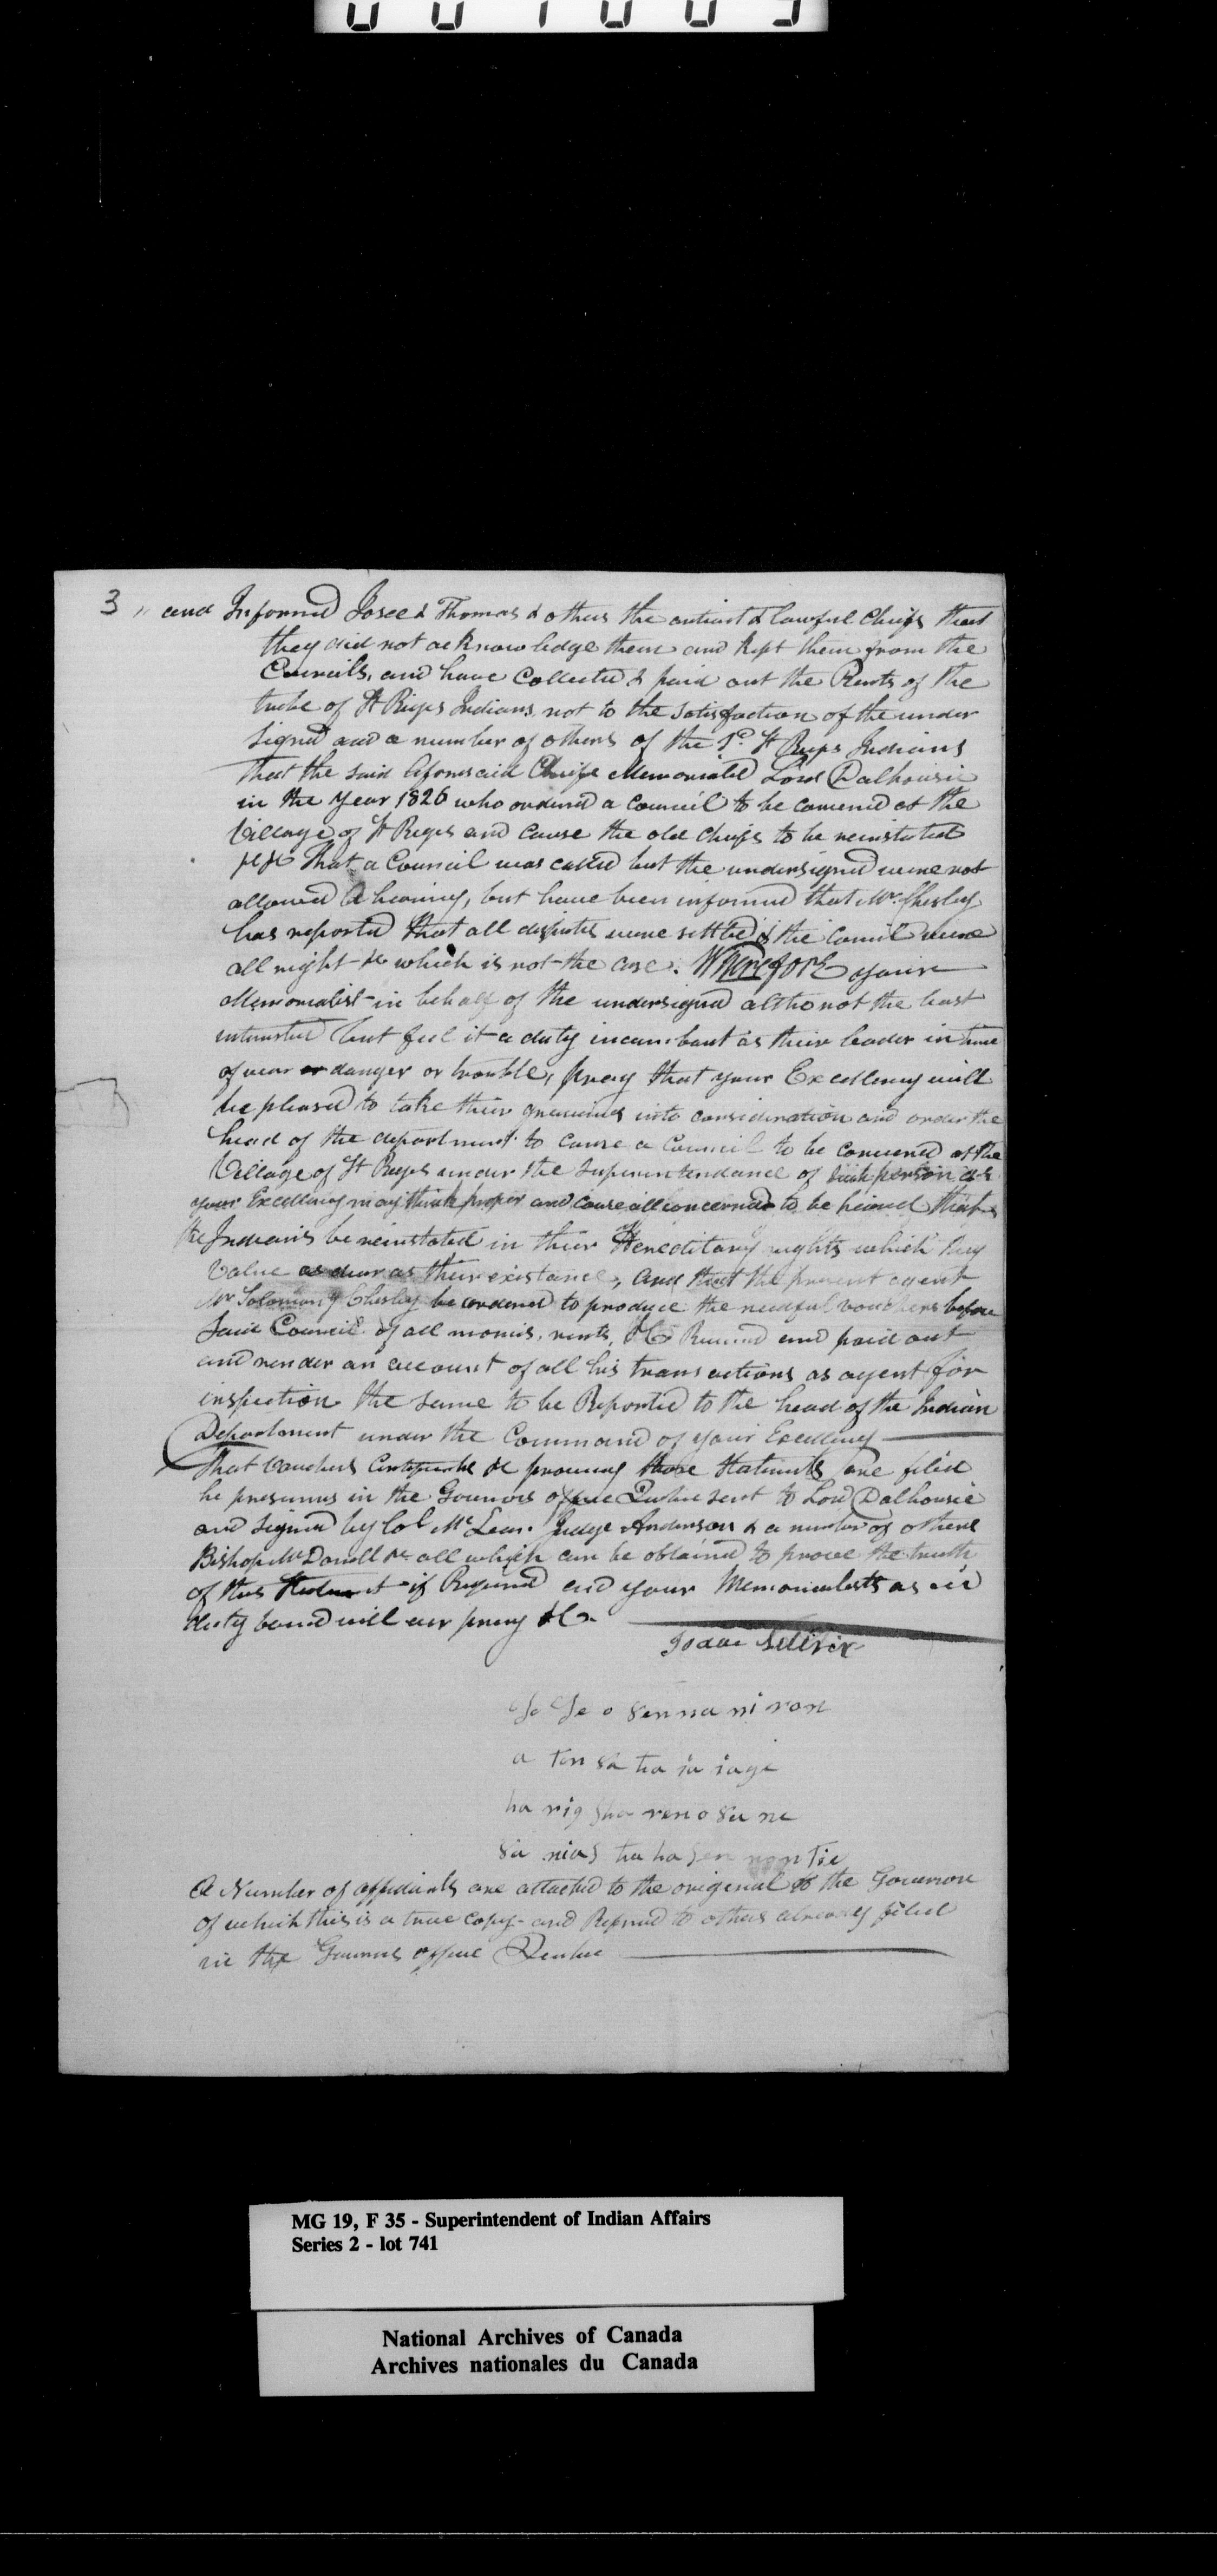 3 " and Informed Josee & Thomas & others the antient & lawful Chiefs that
they did not acknowledge them and kept them from the
Councils, and have Collected & paid out the Rents of the
tribe of St Regis Indians not to the satisfaction of the under
signed and a number of others of the sd. St Regis Indians
That the said aforesaid Chiefs Memorialed Lord Dalhousie
in the Year 1826 who ordered a Council to be convened at the
Village of St Regis and cause the old Chiefs to be reinstated
&c &c That a Council was called but the undersigned were not
allowed a hearing, but have been informed that Mr. Chesley
has reported that all disputes were settled & the Council were
all right &c which is not the case. Wherefore your
Memorialist in behalf of the undersigned altho not the least
interested but feel it a duty incumbant as their leader in time
of war or danger or trouble, pray that your Excellency will
be pleased to take their grievances into consideration and order the
head of the department to cause a Council to be convened at the
Village of St Regis under the superintendance of such person as
your Excellency may think proper and cause all concerned to be heard that
the Indians be reinstated in their Hereditary rights which they
value as dear as their existance, and that the present agent
Mr Solomon Y Chesley be ordered to produce the needful vouchers before
said Council of all monies, rents, &c Received and paid out
and render an account of all his transactions as agent for
inspection the same to be Reported to the head of the Indian
Department under the Command of your Excellency
That vouchers Certificates &c proveing those Statements are filed
he presumes in the Governors office Quebec sent to Lord Dalhousie
and signed by Col McLean. Judge Anderson & a number of others
Bishop McDonell &c all which can be obtained to prove the truth
of this Statement if Required and your Memorialists as in
duty bound will ever pray &c
Isaac
So Se o sen na ni ron
a ton sa ta ia iage
ha rig sha ren o sa ne
sa nias ta ha sen non tie
A Number of affidavits are attached to the original to the Governor
of which this is a true Copy and Refered to others already filed
in the Governors office Quebec
MG 19, F 35 - Superintendent of Indian Affairs
Series 2 - lot 741
National Archives of Canada
Archives nationales du Canada